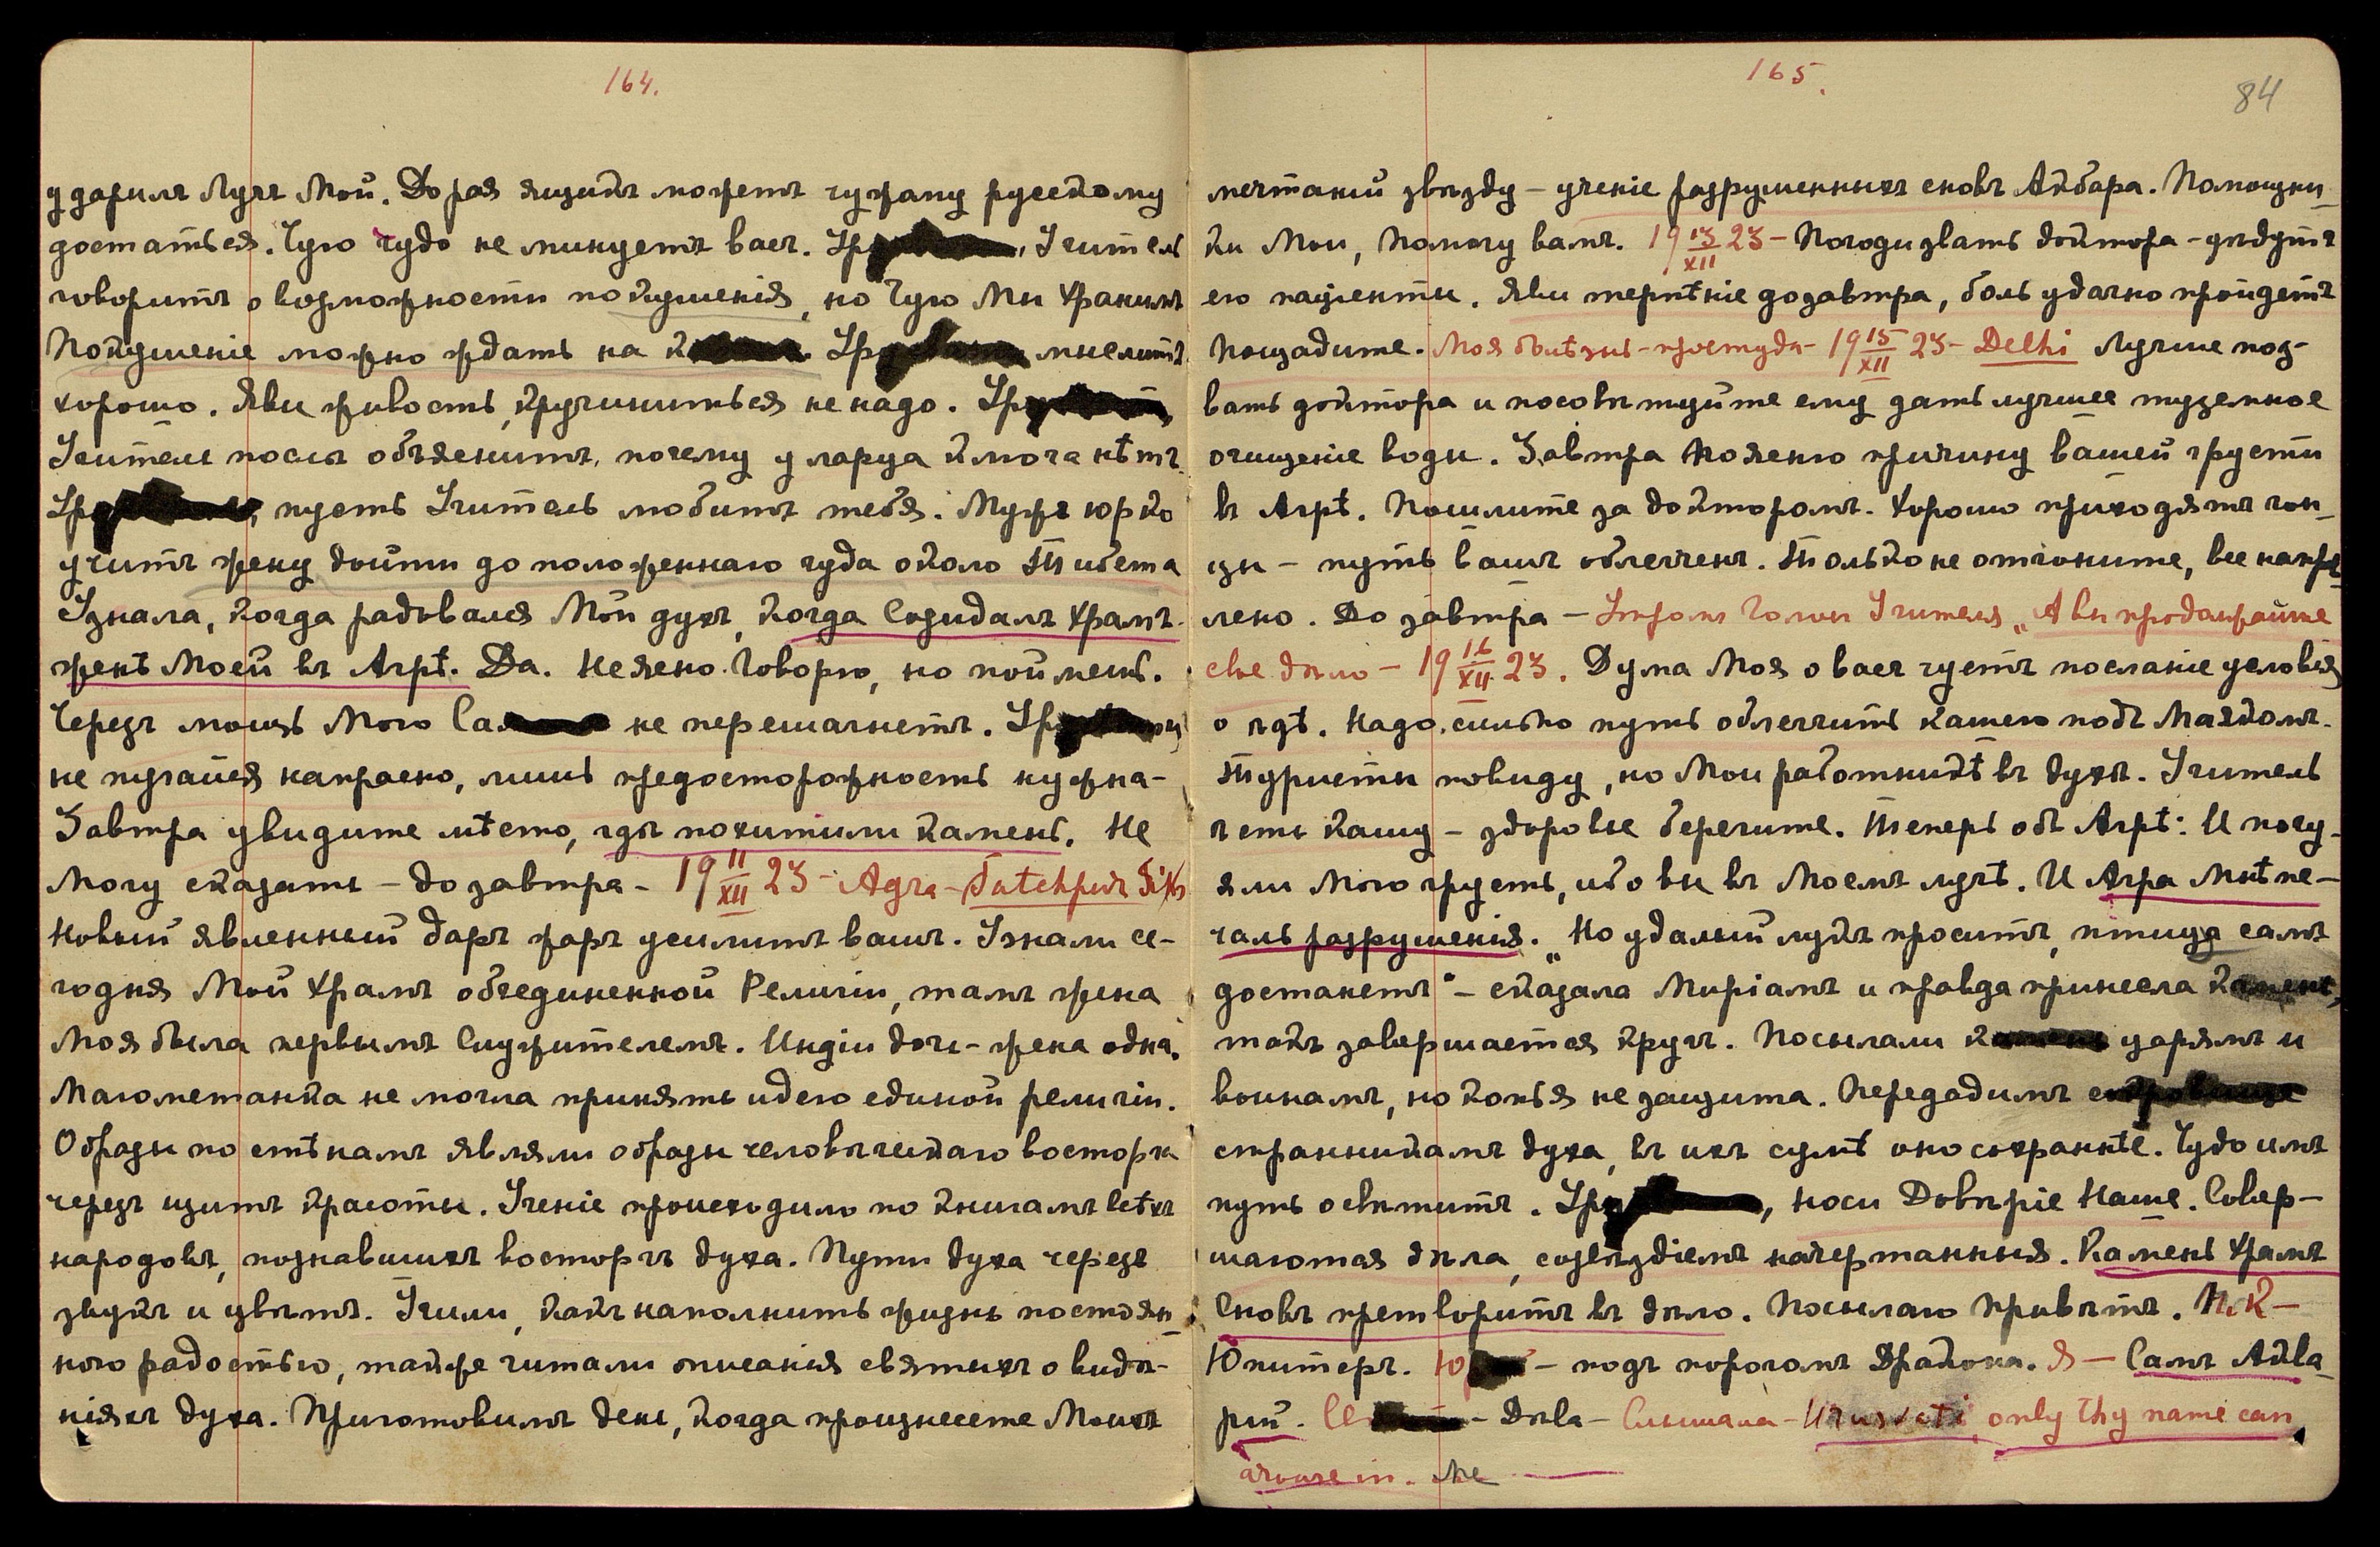 164.
ударилъ Лучъ Мой. До рая ящикъ можетъ чужому русскому
достаться. Чую чудо не минуетъ васъ. Ур Учитель
говоритъ о возможности покушенія, но Чую Мы Хранимъ
Покушеніе можно ждать на к Ур мыслитъ
хорошо. Яви живость, кручиниться не надо. Ур
Учитель послѣ объяснитъ, почему у ларца ключа нѣтъ.
Ур, пусть Учитель любитъ тебя. Мужъ юрко
учитъ жену дойти до положеннаго чуда около Тибета
Узнала, когда радовался Мой духъ, когда Созидалъ Храмъ
женѣ Моей въ Агрѣ. Да. Неясно Говорю, но поймешь.
Черезъ мощь Мою Са не перешагнетъ. Ур
не пугайся напрасно, лишь предосторожность нужна –
Завтра увидите мѣсто, гдѣ похитили камень. Не
Могу сказать – до завтра – 19 11/XII 23 – Agra – Fatehpur Sikri
Новый явленный даръ жаръ усилитъ вашъ. Узнали се-
годня Мой Храмъ объединенной Религіи, тамъ жена
Моя была первымъ Служителемъ. Индіи дочь – жена одна.
Магометанка не могла принять идею единой религіи.
Образы по стѣнамъ являли образы человѣческаго восторга
черезъ щитъ красоты. Ученіе происходило по книгамъ всѣхъ
народовъ, познавшихъ восторгъ духа. Пути духа черезъ
звукъ и цвѣтъ. Учили, какъ наполнить жизнь постоян-
ною радостью, также читали описанія святыхъ о видѣ-
ніяхъ духа. Приготовимъ день, когда произнесете Моихъ
165.
84
мечтаній звѣзду – ученіе разрушенныхъ сновъ Акбара. Помощни-
ки Мои, Помогу вамъ. 19 13/XII 23 – Погоди звать доктора – уѣдутъ
его паціенты. Яви терпѣніе до завтра, боль удачно пройдетъ
Пощадите. Моя болѣзнь – простуда – 19 15/XII 23 – Delhi Лучше поз-
вать доктора и посовѣтуйте ему дать лучшее туземное
очищеніе воды. Завтра Поясню причину вашей грусти
въ Агрѣ. Пошлите за докторомъ. Хорошо приходятъ гон-
цы – путь вашъ облегченъ. Только не отгоните, все напря-
лено. До завтра – Утромъ Голосъ Учителя „А вы продолжайте
свое дѣло – 19 16/XII 23. Дума Моя о васъ чуетъ посланіе условія
о ядѣ. Надо сильно путь облегчить вашего подъ Маякомъ.
Туристы повиду, но Мои работникѣ въ духѣ. Учитель
чтить вашу – здоровье берегите. Теперь объ Агрѣ: И почу-
яли Мою грусть, ибо вы въ Моемъ лучѣ. И Агра Мнѣ пе-
чаль разрушенія. „Но удалый лукъ проситъ, птица самъ
достанетъ“ – сказала Миріамъ и правда принесла Камень,
такъ завершается кругъ. Посылали камень царямъ и
воинамъ, но копья не защита. Передадимъ сокровище
странникамъ духа, въ ихъ сумѣ оно сохраннѣе. Чудо имъ
путь освѣтитъ. Ур, носи Довѣріе Наше. Совер-
шаются дѣла, созвѣздіемъ начертанныя. Камень Храмъ
Сновъ претворитъ въ дѣло. Посылаю Привѣтъ. Н.К –
Юпитеръ. Ю – подъ порогомъ Дракона. Я – Самъ Аква-
рій. Св – Дѣва – Слышала – Urusvati, only thy name can
arouse in. Me